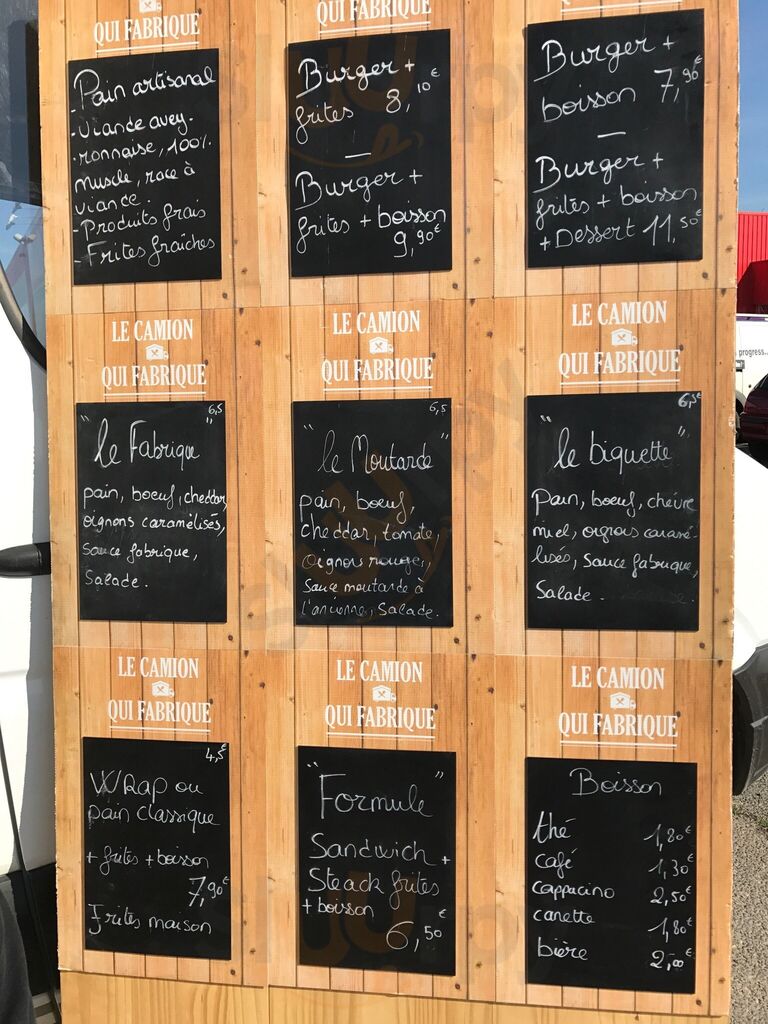 QUI FABRIQUE
Pain artisanal
- Viande avey-
ronnaise, 100%
muscle, race à
viance.
- Produits frais
- Frites fraîches
QUI FABRIQUE
Burger +
frites 8,10€
—
Burger +
frites + boisson
9,90€
LE CAMION
QUI FABRIQUE
Burger +
boisson 7,90€
—
Burger +
frites + boisson
+ Dessert 11,50€
LE CAMION
QUI FABRIQUE
6,5
"le Fabrique"
pain, boeuf, cheddar,
oignons caramélisés,
sauce fabrique,
Salade.
LE CAMION
QUI FABRIQUE
6,5
"le Moutarde"
pain, boeuf,
cheddar, tomate,
oignons rouges,
sauce moutarde à
l'ancienne, Salade.
LE CAMION
QUI FABRIQUE
6,5€
"le biquette"
Pain, boeuf, chèvre
miel, oignons caramé-
lisés, Sauce fabrique,
Salade.
LE CAMION
QUI FABRIQUE
4,5€
WRap ou
pain classique
+ frites + boisson
7,90€
Frites maison
LE CAMION
QUI FABRIQUE
"Formule"
Sandwich +
Steack frites
+ boisson
6,50€
LE CAMION
QUI FABRIQUE
Boisson
thé 1,80€
café 1,30€
cappucino 2,50€
canette 1,80€
bière 2,00€
progress..